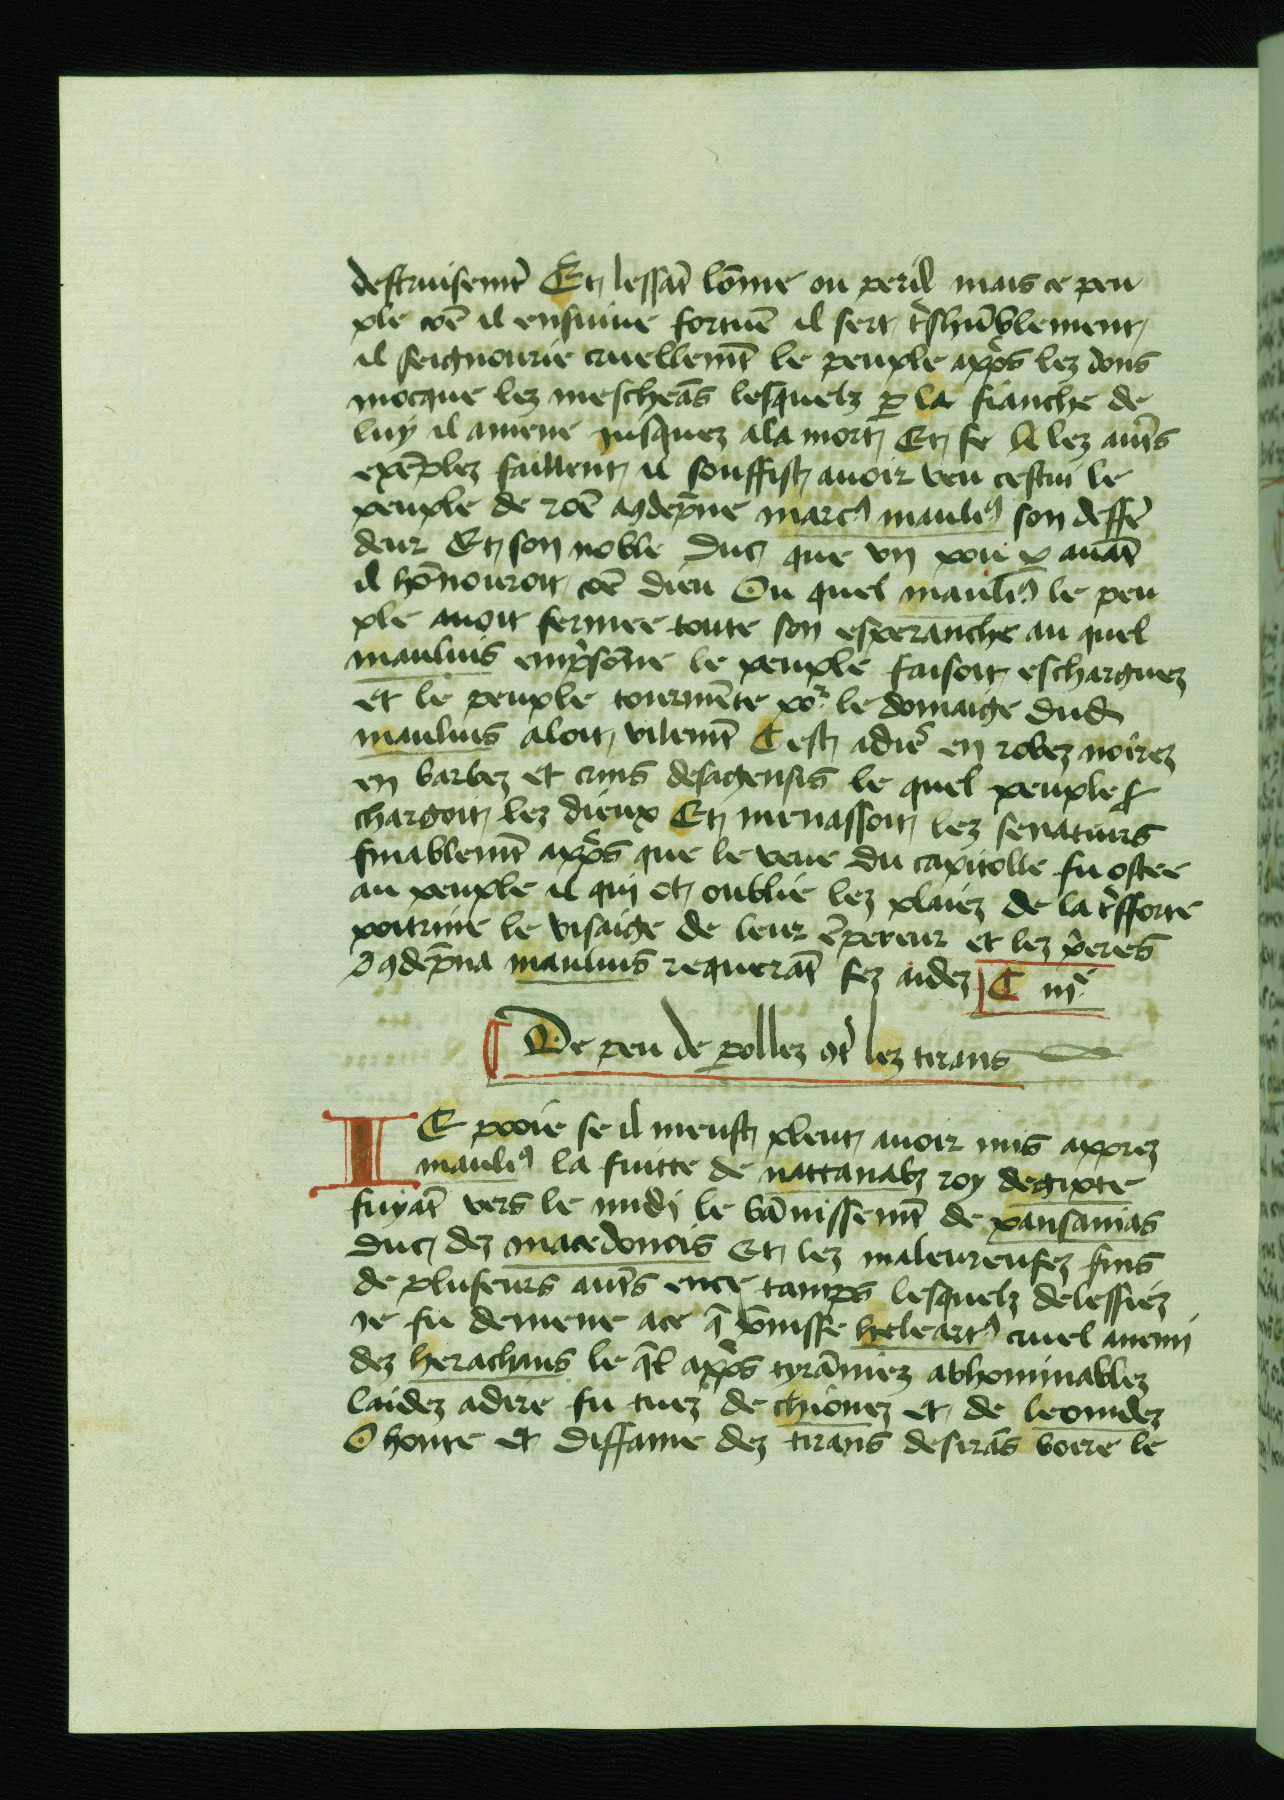 destruisemt̄ Et lessāt lōme ou peril mais ce peu
ple cōe il ensuiue fortūe il sert t̄shūblement
il seignourie cruellemt̄ le peuple ap̄s lez dons
mocque lez mescheās lesquelz ꝑ la fianche de
luy il amene jusquez ala mort Et se le lez aut̄s
exēplez faillent il souffist auoir veu cestui le
peuple de rōe ꝯdēpne marcꝰ manliꝰ son deffē
deur Et son noble duc que vn pou ꝑ auāt
il hōnouroit cōe dieu Ou quel manliꝰ le peu
ple auoit fermee toute son esperanche au quel
manlius emp̄sōne le peuple faisoit escharguez
et le peuple tourmēte po᷑ le domaige dud
manlius aloit vilemt̄ Cest adir̄e en robez noirez
en barbez et crins desagensis le quel peuple
chargoit lez dieux Et menassoit lez senateurs
finablemt̄ ap̄s que le veue du capitolle fu ostee
au peuple il qui ot oublie lez plaiez de la t̄sforte
poitrine le visaige de leur ēpereur et lez p̄eres
ꝯdēpna manlius requerāt sez aidez C iiiᵉ
De peu de ꝑollez ꝯt̄ lez tirans
IE pooie se il meust pleut auoir mis aprez
manliꝰ la fuitte de nattanabz roy degipte
fuyāt vers le midj le bānissemt̄ de pansanias
duc dez macedonois Et lez maleureusez fins
de pluseurs aut̄s ence tamps lesquelz delessiez
ie fu demene ace q̄ v̄nisse heleartꝰ cruel anemi
dez herachans le q̄l ap̄s tyrāniez abhominablez
laidez adire fu tuez de chionez et de leonidez
O honte et diffame dez tirans desirās boire le